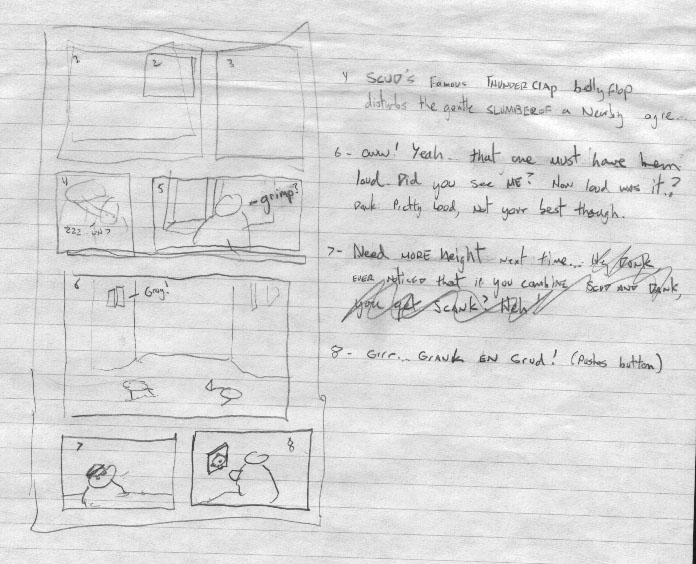 1
2
3
4
zzz UN?
5
grimp?
6
Grog!
7
8
4 SCUD'S Famous THUNDERCLAP bellyflop
disturbs the gentle SLUMBER OF a Nearby ogre...
6 - oww! Yeah.. that one must have been
loud. Did you see ME? How loud was it..?
Dank Pretty loud, Not your best though.
7- Need MORE height Next time...
EVER NOTICED that if you combine SCUD AND DANK,
you get SCANK? Heh!
8 - Grr... GRANK EN Grud! (Pushes button)